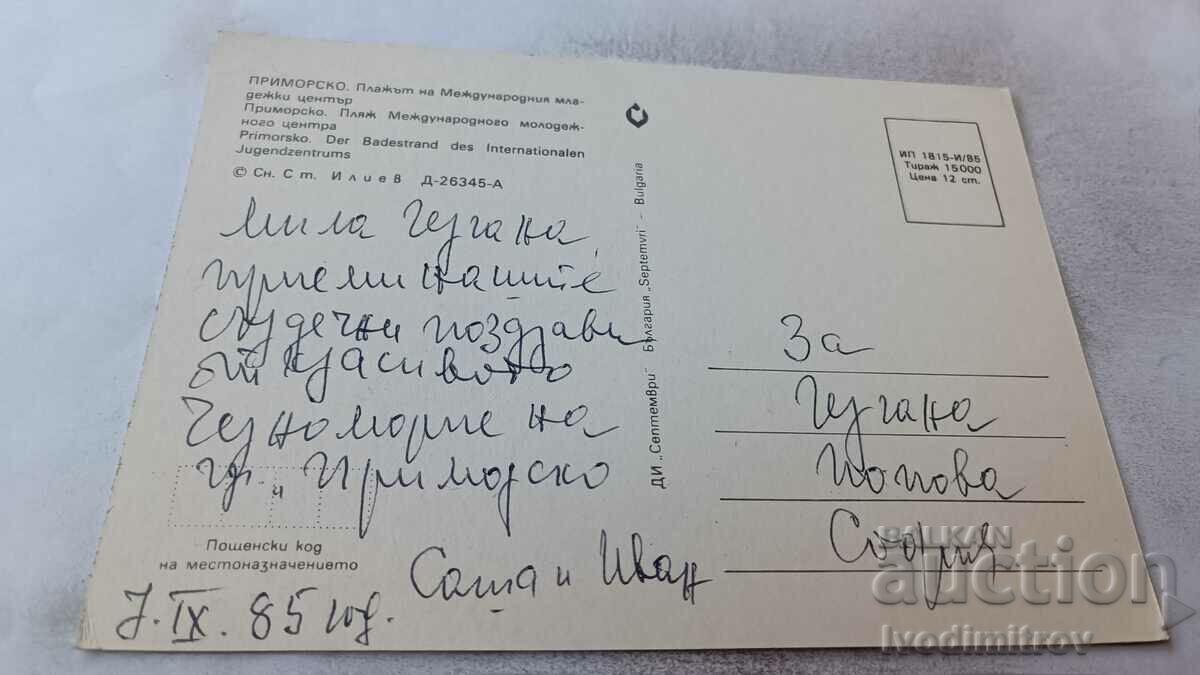 ПРИМОРСКО. Плажът на Международния мла-
дежки център
Приморско. Пляж Международного молодеж-
ного центра
Primorsko. Der Badestrand des Internationalen
Jugendzentrums
© Сн. Ст. Илиев Д-26345-А
Мила Гергана,
приеми нашите
сърдечни поздрави
от красивото
Черноморие на
гр. Приморско
Саша и Иван
7.IX.85 год.
Пощенски код
на местоназначението
ДИ „Септември" България „Septemvri" - Bulgaria
ИП 1815-И/85
Тираж 15000
Цена 12 ст.
За
Гергана
Попова
София
BALKAN
auction
Ivodimitrov